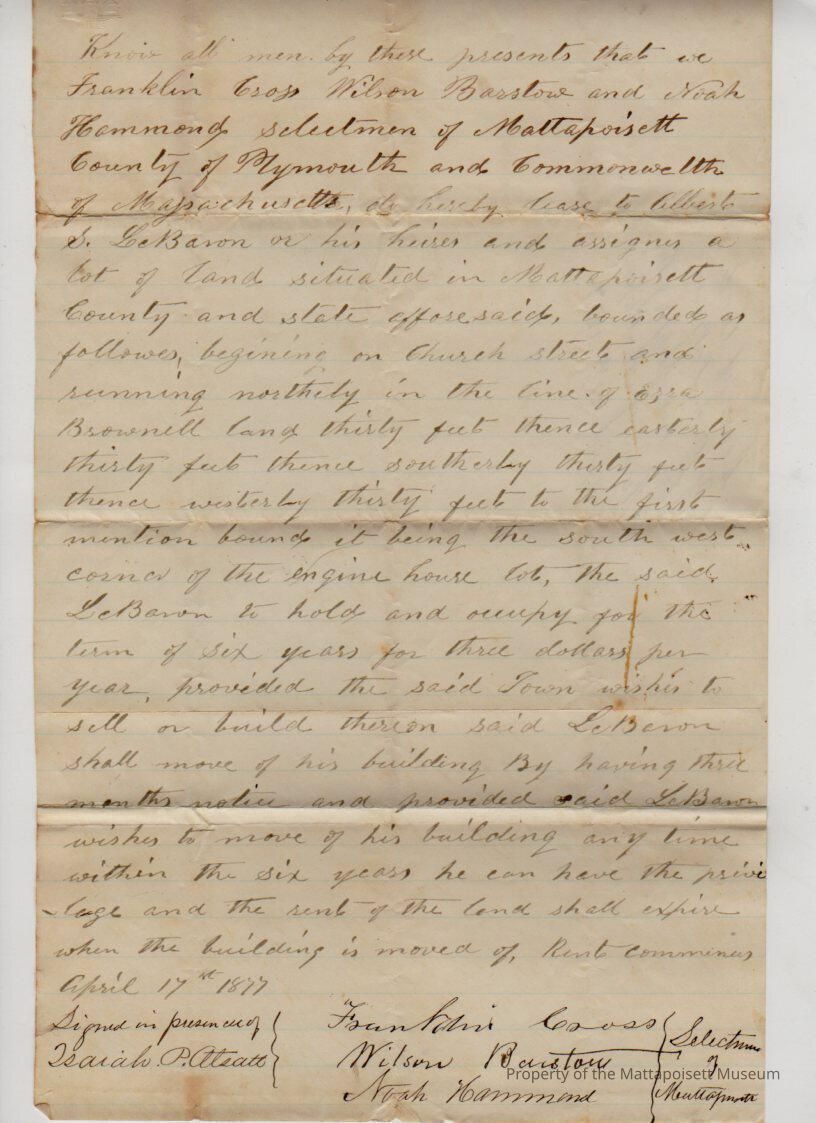 Know all men by these presents that we
Franklin Cross Wilson Barstow and Noah
Hammond selectmen of Mattapoisett
County of Plymouth and Commonwelth
of Massachusetts, do hereby lease to Albert
S. LeBaron or his heires and assignes a
lot of land situated in Mattapoisett
County and state afforesaid, bounded as
followes, begining on Church street and
running northely in the line of Ezra
Brownell land thirty feet thence easterly
thirty feet thence southerly thirty feet
thence westerly thirty feet to the first
mention bound it being the south west
corner of the engine house lot, the said
LeBaron to hold and occupy for the
term of six years for three dollars per
year, provided the said Town wishes to
sell or build thereon said LeBaron
shall move of his building By having three
months notice and provided said LeBaron
wishes to move of his building any time
within the six years he can have the privi
lage and the rent of the land shall expire
when the building is moved of, Rent commences
April 17 st 1877
Signed in presence of
Isaiah P. Atsatt
Franklin Cross
Wilson Barstow
Noah Hammond
Selectmen
of
Mattapoisett
Property of the Mattapoisett Museum